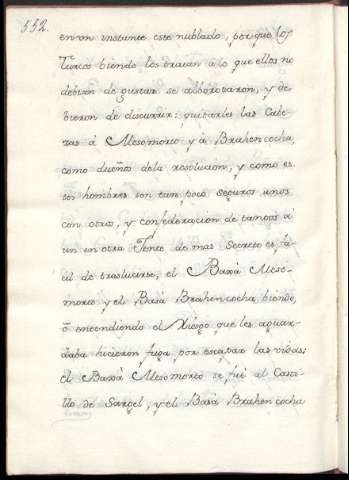 552.
en un instante este nublado, porque los
Turcos biendo los traian à lo que ellos no
debian de gustar se alborotaron, y de=
bieron de discurrir: quitarles las Cabe=
zas à Mesomorto y à Brahen cocha,
como dueños dela resolucion, y como es=
tos hombres son tan poco seguros unos
con otros, y confederacion de tantos a=
un en otra Jente de mas Secreto es fa=
cil de traslucirse, el Baxà Meso=
morto y el Baxà Brahen cocha, biendo,
ò entendiendo el Riesgo que les aguar=
daba hicieron fuga por escapar las vidas:
el Baxà Mesomorto se fuè al Casti=
llo de Sargel, y el Baxà Brahen cocha